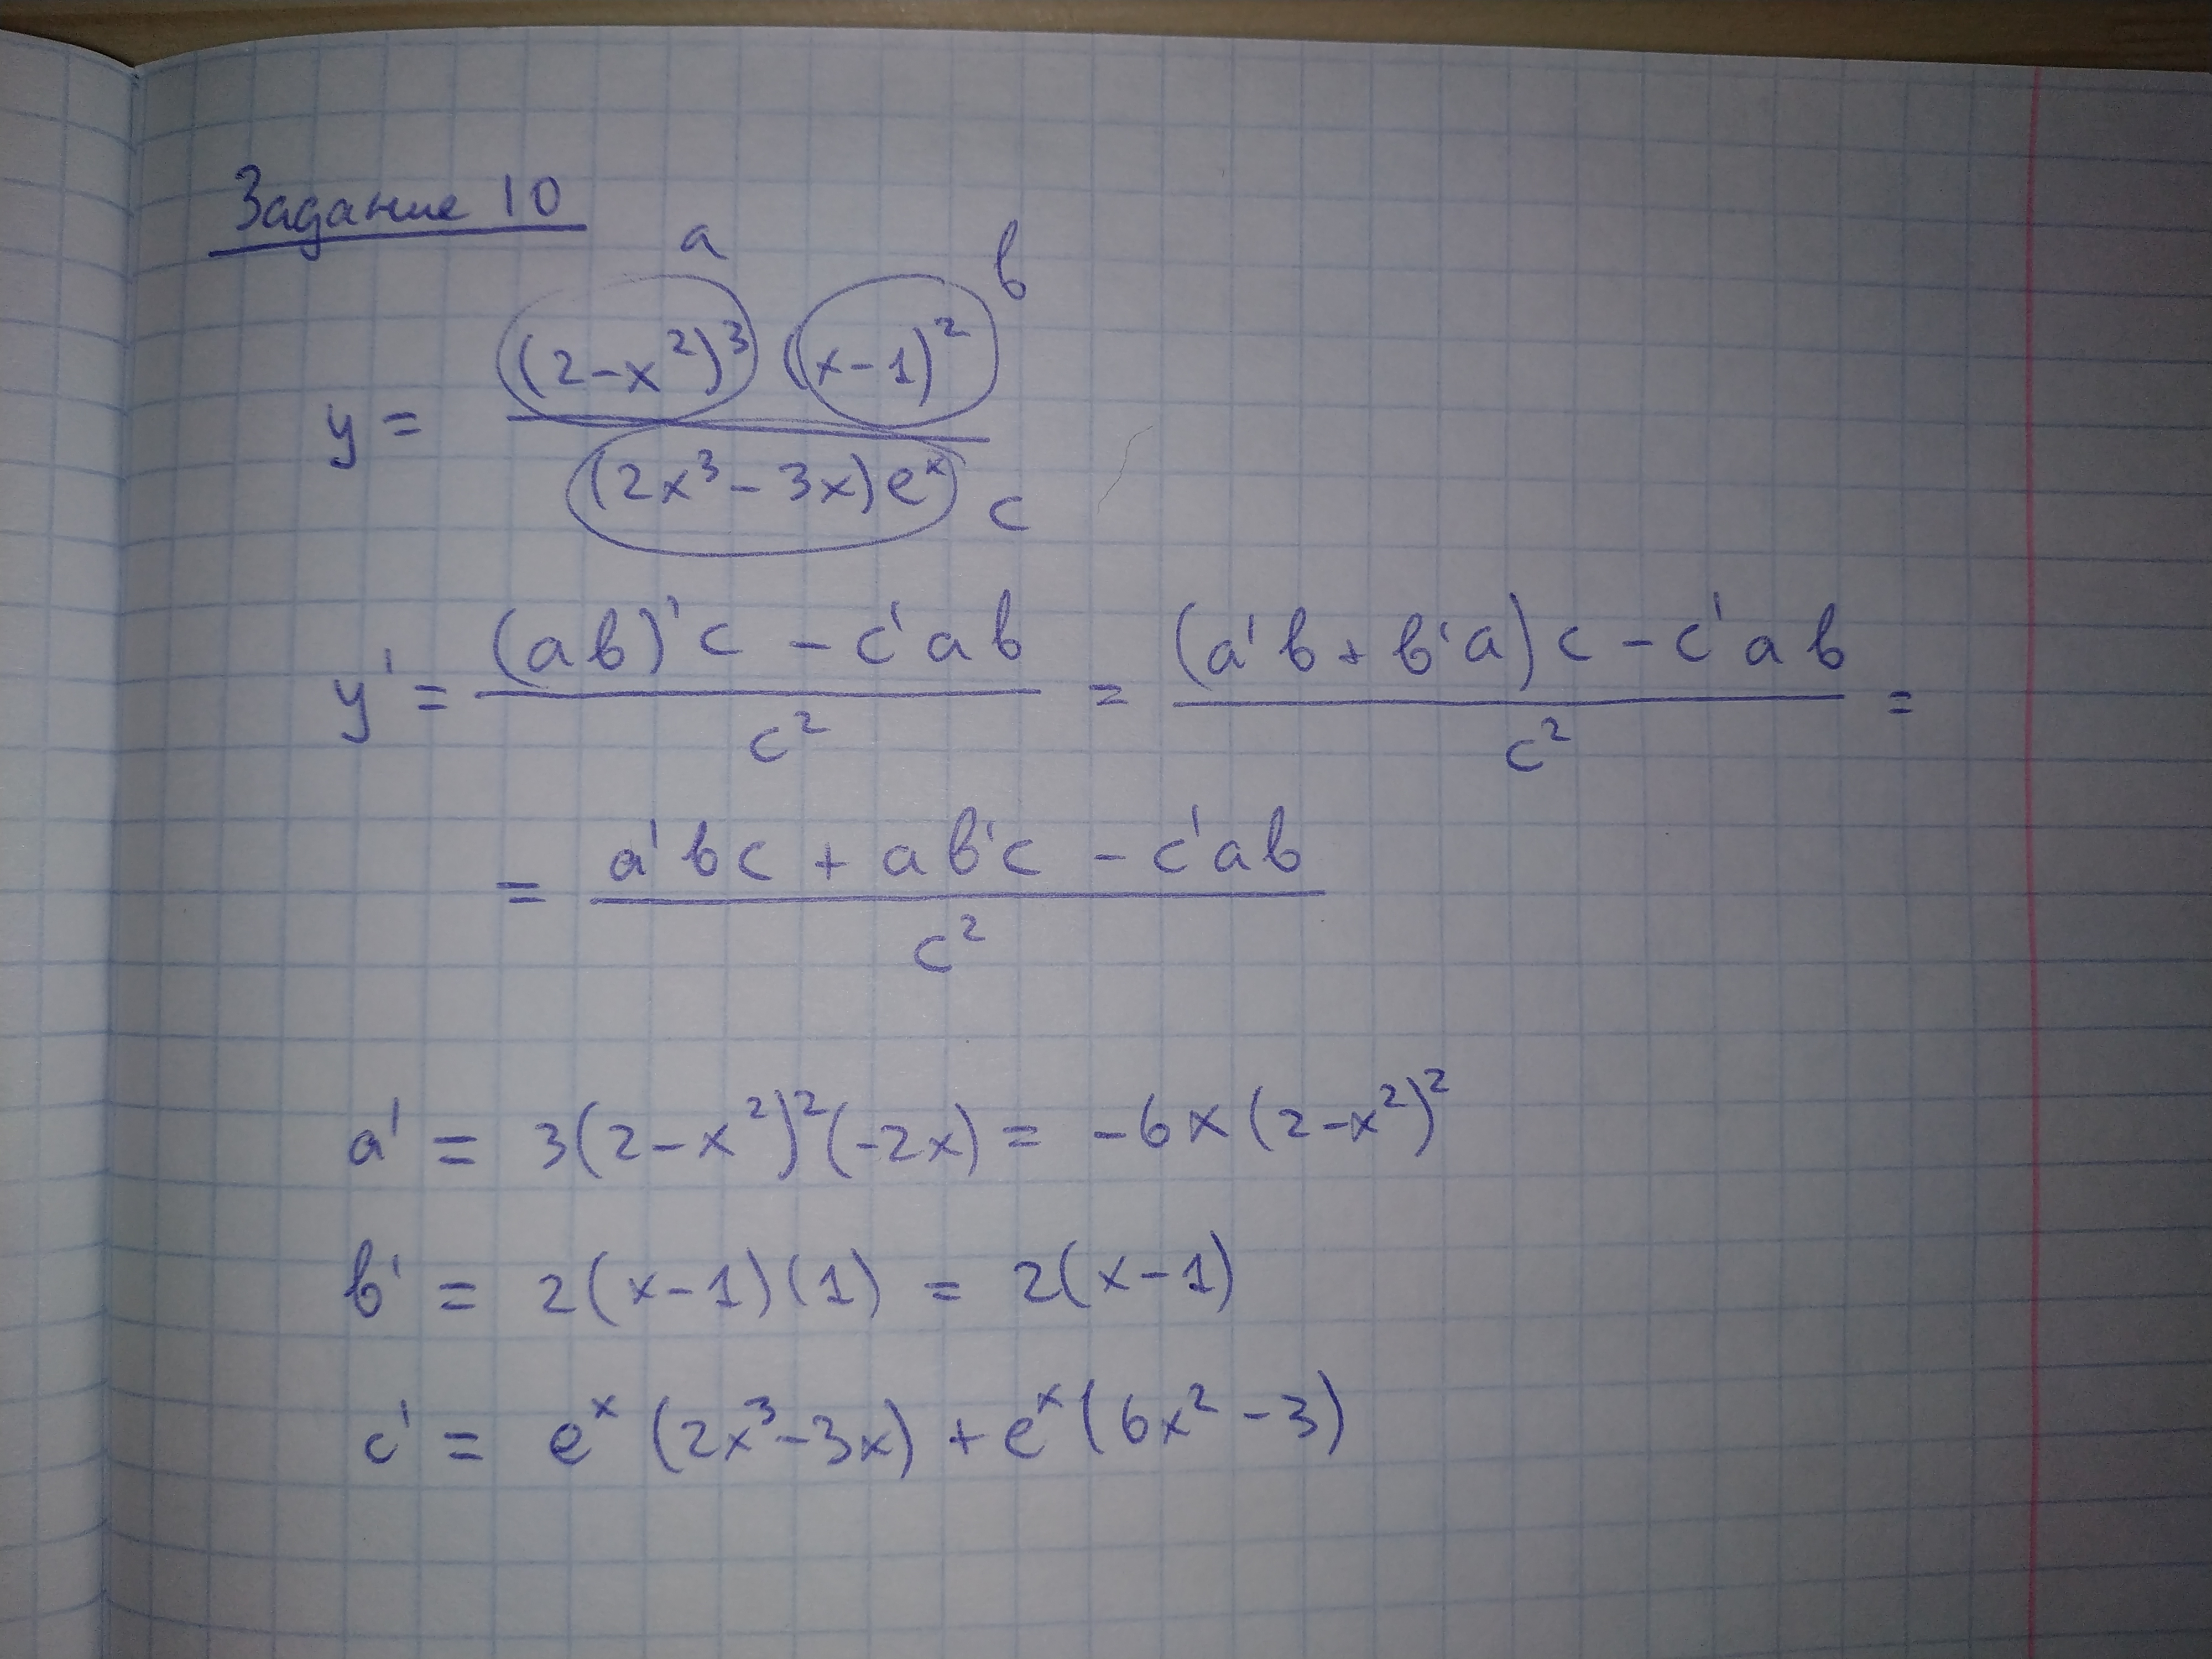 Задание 10
a b
y = (2-x²)³ (x-1)² / (2x³-3x)eˣ c
y' = (ab)'c - c'ab / c² = (a'b + b'a)c - c'ab / c² =
= a'bc + ab'c - c'ab / c²
a' = 3(2-x²)²(-2x) = -6x(2-x²)²
b' = 2(x-1)(1) = 2(x-1)
c' = eˣ(2x³-3x) + eˣ(6x²-3)